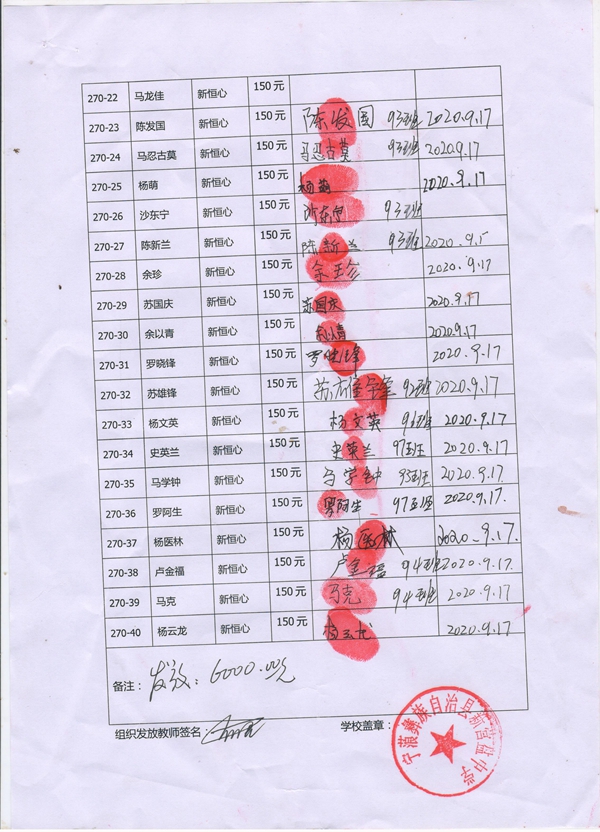 270-22 马龙佳 新恒心 150元
270-23 陈发国 新恒心 150元 陈发国 93班 2020.9.17
270-24 马忍古莫 新恒心 150元 马忍古莫 93班 2020.9.17
270-25 杨萌 新恒心 150元 杨萌 2020.9.17
270-26 沙东宁 新恒心 150元 沙东宁 93班
270-27 陈新兰 新恒心 150元 陈新兰 93班 2020.9.5
270-28 余珍 新恒心 150元 余珍 2020.9.17
270-29 苏国庆 新恒心 150元 苏国庆 2020.9.17
270-30 余以青 新恒心 150元 余以青 2020.9.17
270-31 罗晓锋 新恒心 150元 罗晓锋 2020.9.17
270-32 苏雄锋 新恒心 150元 92班 2020.9.17
270-33 杨文英 新恒心 150元 杨文英 91班 2020.9.17
270-34 史英兰 新恒心 150元 史英兰 97班 2020.9.17
270-35 马学钟 新恒心 150元 马学钟 93班 2020.9.17
270-36 罗阿生 新恒心 150元 罗阿生 97班 2020.9.17.
270-37 杨医林 新恒心 150元 杨医林 2020.9.17.
270-38 卢金福 新恒心 150元 卢金福 94班 2020.9.17.
270-39 马克 新恒心 150元 马克 94班 2020.9.17
270-40 杨云龙 新恒心 150元 杨云龙 2020.9.17
备注： 发放：6000.00元
组织发放教师签名： 学校盖章：
宁蒗彝族自治县新营盘中学